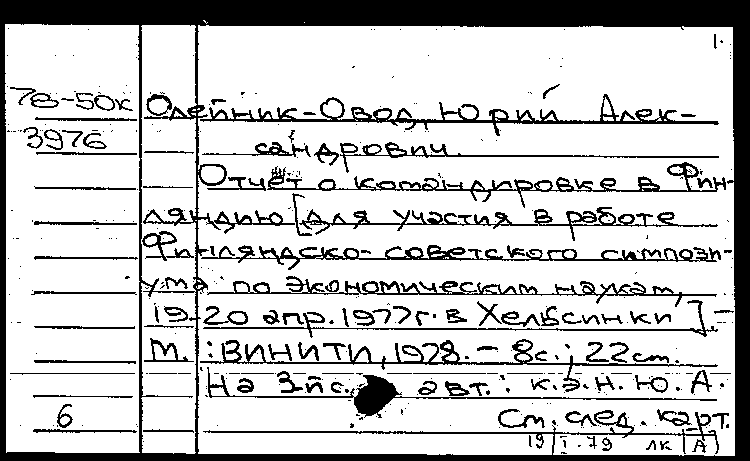 1.
78-50к Олейник-Овод, Юрий Алек-
3976 сандрович.
Отчёт о командировке в Фин-
ляндию [для участия в работе
Финляндско-советского симпози-
ума по экономическим наукам,
19-20 апр. 1977г. в Хельсинки].-
М.: ВИНИТИ, 1978. - 8с.; 22см.
На 3-й с. авт.: к.э.н. Ю.А.
6 См. след. карт.
19 I.79 ЛК А